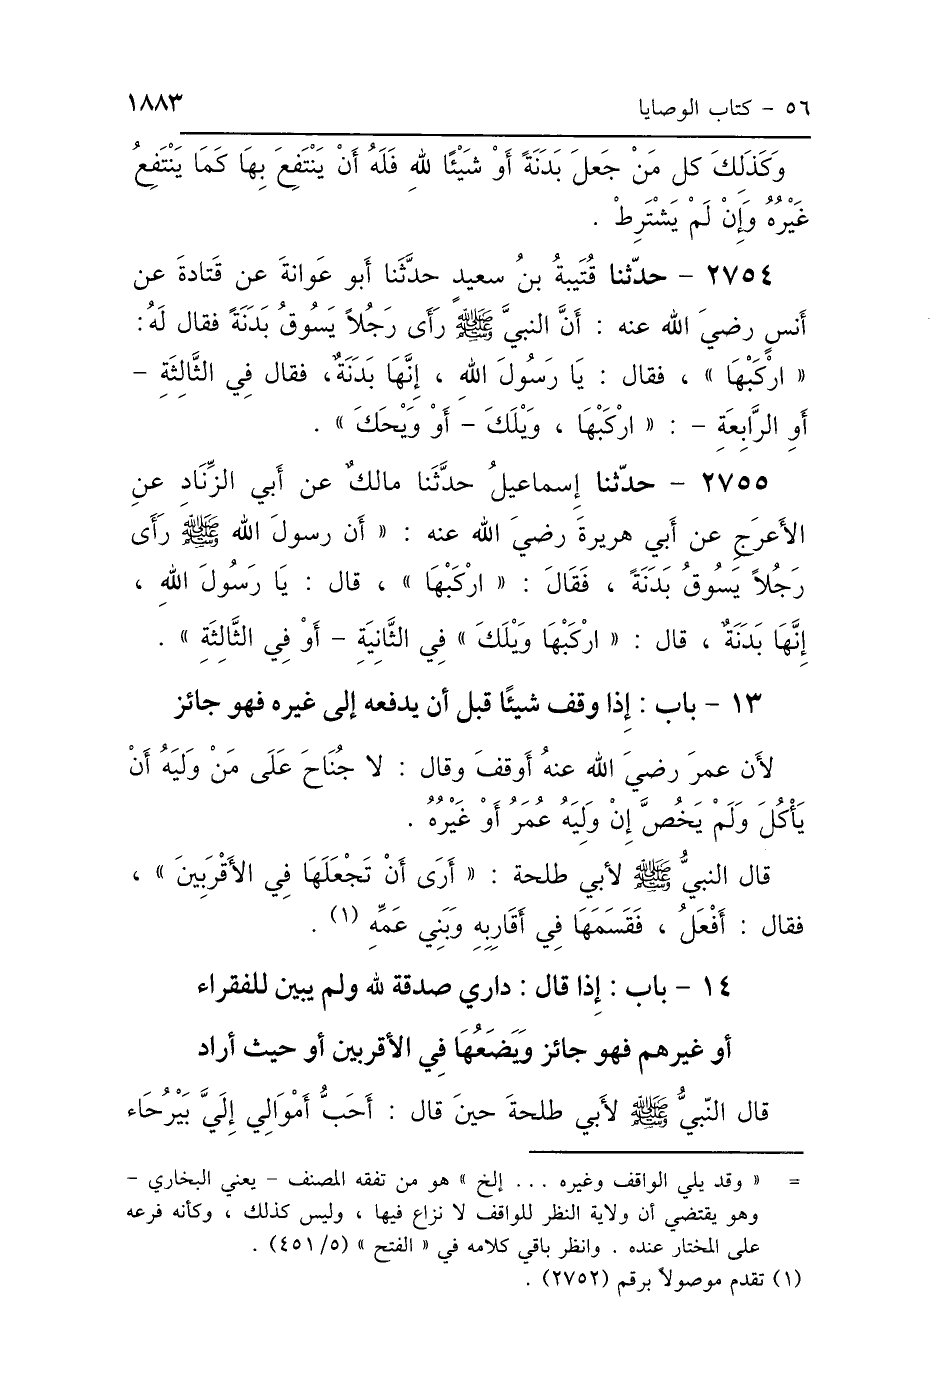 ٥٦ - كتاب الوصايا ١٨٨٣
وَكَذَلِكَ كل مَنْ جَعلَ بَدَنَةً أوْ شَيْئًا للهِ فَلَهُ أنْ يَنْتَفِعَ بِهَا كَمَا يَنْتَفِعُ
غَيْرُهُ وَإِنْ لَمْ يَشْتَرِطْ .
٢٧٥٤ - حدّثنا قُتَيبةُ بنُ سعيدٍ حدَّثَنا أبو عَوانةَ عن قَتادةَ عن
أنسٍ رضيَ الله عنه : أنَّ النبيَّ ﷺ رَأَى رَجُلاً يَسُوقُ بَدَنَةً فقال لَهُ:
« ارْكَبْهَا » ، فقال : يَا رَسُولَ اللهِ ، إنَّهَا بَدَنَةٌ، فقال فِي الثَّالِثَةِ -
أوِ الرَّابِعَةِ - : « ارْكَبْهَا ، وَيْلَكَ - أوْ وَيْحَكَ » .
٢٧٥٥ - حدّثنا إسماعيلُ حدَّثَنا مالكٌ عن أبي الزِّنَادِ عنِ
الأعرَجِ عن أبي هريرةَ رضيَ الله عنه : « أن رسولَ الله ﷺ رَأَى
رَجُلاً يَسُوقُ بَدَنَةً ، فَقَالَ : « ارْكَبْهَا » ، قال : يَا رَسُولَ اللهِ ،
إنَّهَا بَدَنَةٌ ، قال : « ارْكَبْهَا وَيْلَكَ » فِي الثَّانِيَةِ - أوْ فِي الثَّالثَةِ » .
١٣ - باب : إذا وقف شيئًا قبل أن يدفعه إلى غيره فهو جائز
لأن عمرَ رضيَ الله عنهُ أوقفَ وقال : لا جُنَاحَ عَلَى مَنْ وَلِيَهُ أنْ
يَأْكُلَ وَلَمْ يَخُصَّ إنْ وَلِيَهُ عُمَرُ أوْ غَيْرُهُ .
قال النبيُّ ﷺ لأبي طلحة : « أرَى أنْ تَجْعَلَهَا فِي الأقْرَبِينَ » ،
فقال : أفْعَلُ ، فَقَسَمَهَا فِي أقَارِبِهِ وَبَنِي عَمِّهِ (١) .
١٤ - باب : إذا قال : داري صدقة لله ولم يبين للفقراء
أو غيرهم فهو جائز وَيَضَعُهَا فِي الأقربين أو حيث أراد
قال النّبيُّ ﷺ لأبي طلحةَ حينَ قال : أحَبُّ أمْوَالِي إلَيَّ بَيْرُحَاء
= « وقد يلي الواقف وغيره ... إلخ » هو من تفقه المصنف - يعني البخاري -
وهو يقتضي أن ولاية النظر للواقف لا نزاع فيها ، وليس كذلك ، وكأنه فرعه
على المختار عنده . وانظر باقي كلامه في « الفتح » (٤٥١/٥) .
(١) تقدم موصولاً برقم (٢٧٥٢) .